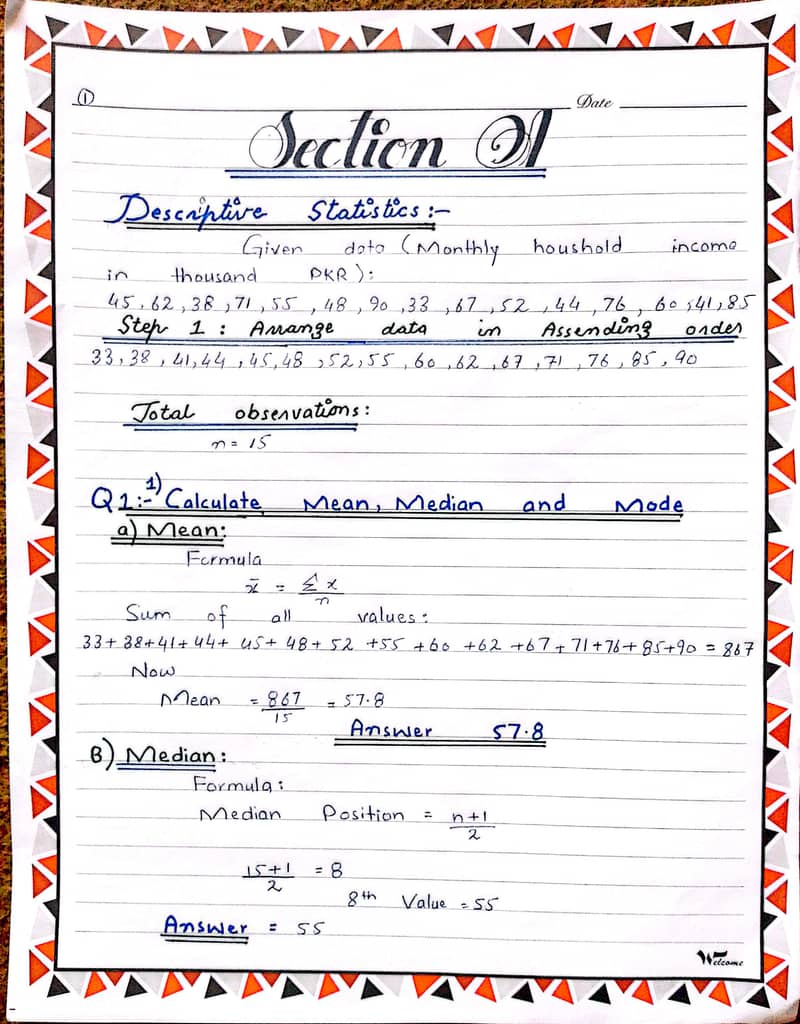 ①
Date
Section A
Descriptive Statistics :-
Given data (Monthly houshold income
in thousand PKR):
45, 62, 38, 71, 55, 48, 90, 33, 67, 52, 44, 76, 60, 41, 85
Step 1 : Arrange data in Assending order
33, 38, 41, 44, 45, 48, 52, 55, 60, 62, 67, 71, 76, 85, 90
Total observations:
n = 15
Q1:- 1) Calculate Mean, Median and Mode
a) Mean:
Formula
x̄ = Σx/n
Sum of all values:
33+38+41+44+45+48+52+55+60+62+67+71+76+85+90 = 867
Now
Mean = 867/15 = 57.8
Answer 57.8
B) Median:
Formula:
Median Position = n+1/2
15+1/2 = 8
8th Value = 55
Answer = 55
Welcome